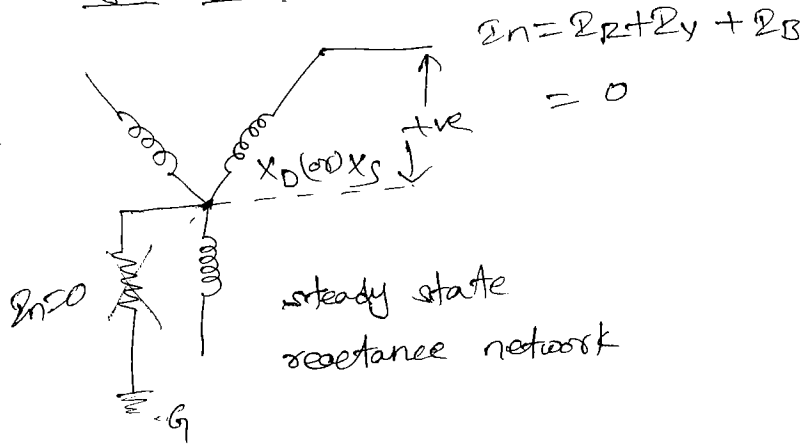 In = IR + IY + IB
= 0
+ve
XD (or) XS
In=0
steady state
reactance network
G